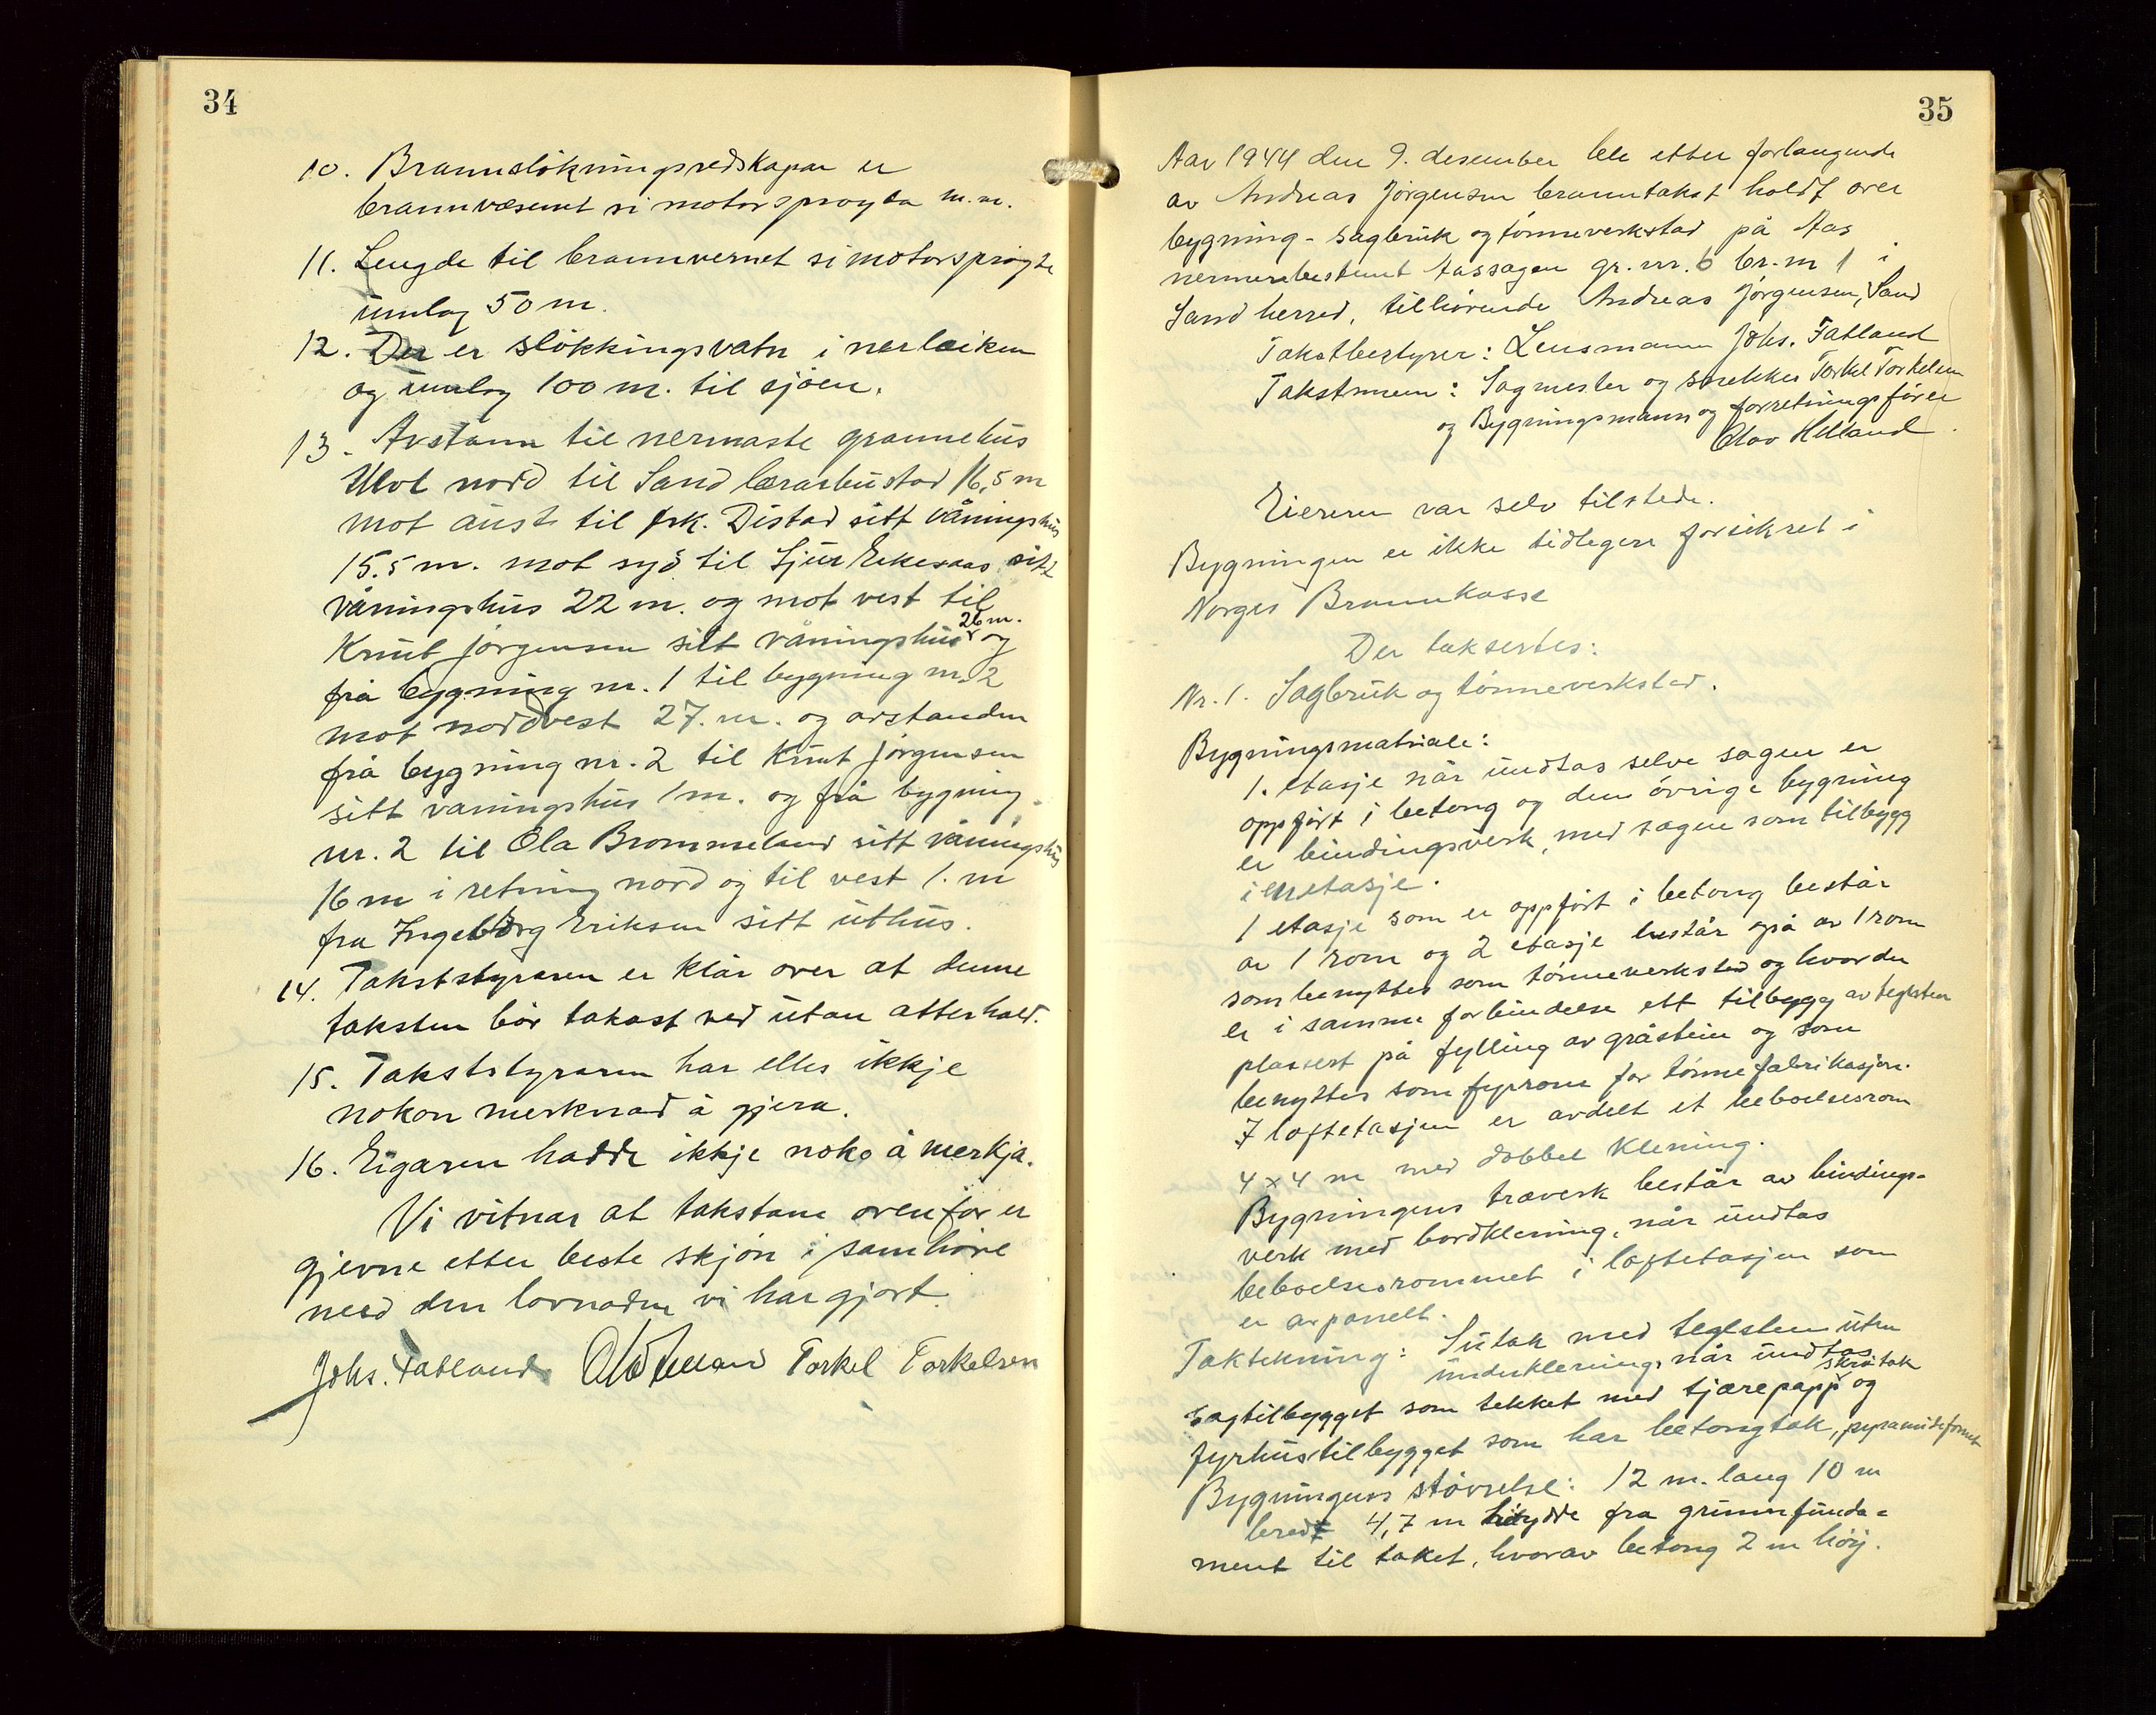 34
10. Brannsløkningsredskapar er
brannvæsenet si motorsprøyta m.m.
11. Lengde til brannvernet si motorsprøyte
umlag 50 m.
12. Der er sløkkingsvatn i nerleiken
og umlag 100 m. til sjøen.
13. Avstann til nermaste grannehus
Mot nord til Sand lærarbustad 16,5 m
mot aust til frk. Distad sitt våningshus
15.5 m. mot syd til Sjur Eikesaas sitt
våningshus 22 m. og mot vest til
Knut Jørgensen sitt våningshus 26 m. og
frå bygning nr. 1 til bygning nr. 2
mot nordvest 27. m. og avstanden
frå bygning nr. 2 til Knut Jørgensen
sitt våningshus 1 m. og frå bygning
nr. 2 til Ola Brommeland sitt våningshus
16 m i retning nord og til vest 1. m
fra Ingeborg Eriksen sitt uthus.
14. Takststyraren er klår over at denne
taksten bør takast ved utan atterhald.
15. Takststyraren har elles ikkje
nokon merknad å gjera.
16. Eigaren hadde ikkje noko å merkja.
Vi vitnar at takstane ovenfor er
gjevne etter beste skjøn i samhøve
med den lovnaden vi har gjort.
Johs. Fatland Olav Helland Torkel Torkelsen
35
Aar 1944 den 9. desember ble etter forlangende
av Andreas Jørgensen branntakst holdt over
bygning - sagbruk og tønneverkstad på Aas
nermerebestemt Aassagen gr. nr. 6 br. nr 1 i
Sand herred, tilhørende Andreas Jørgensen, Sand
Takstbestyrer: Lensmann Johs. Fatland
Takstmenn: Sagmester og snekker Torkel Torkelsen
og Bygningsmann og forretningsfører
Olav Helland.
Eieren var selv tilstede.
Bygningen er ikke tidligere forsikret i
Norges Brannkasse
Der taksertes:
Nr. 1. Sagbruk og tønneverkstad.
Bygningsmatriale:
1. etasje når undtas selve sagen er
oppført i betong og den øvrige bygning
er bindingsverk, med sagen som tilbygg
i en etasje.
1 etasje som er oppført i betong består
av 1 rom og 2 etasje består også av 1 rom
som benyttes som tønneverksted og hvor der
er i samme forbindelse ett tilbygg av teglsten
plassert på fylling av gråstein og som
benyttes som fyrrom for tønnefabrikasjon.
I loftetasjen er avdelt et beboelsesrom
4 x 4 m med dobbel kledning.
Bygningens træverk består av bindings-
verk med bordkledning, når undtas
beboelsesrommet i loftetasjen som
er avpanelt.
Taktekning: Sutak med teglsten uten
underkledning, når undtas
sagtilbygget som tekket med tjærepapp skråtak og
fyrhustilbygget som har betongtak, pyramideformet
Bygningens størrelse: 12 m. lang 10 m
bredt 4,7 m høydde fra grunnfunda-
ment til taket, hvorav betong 2 m høy.